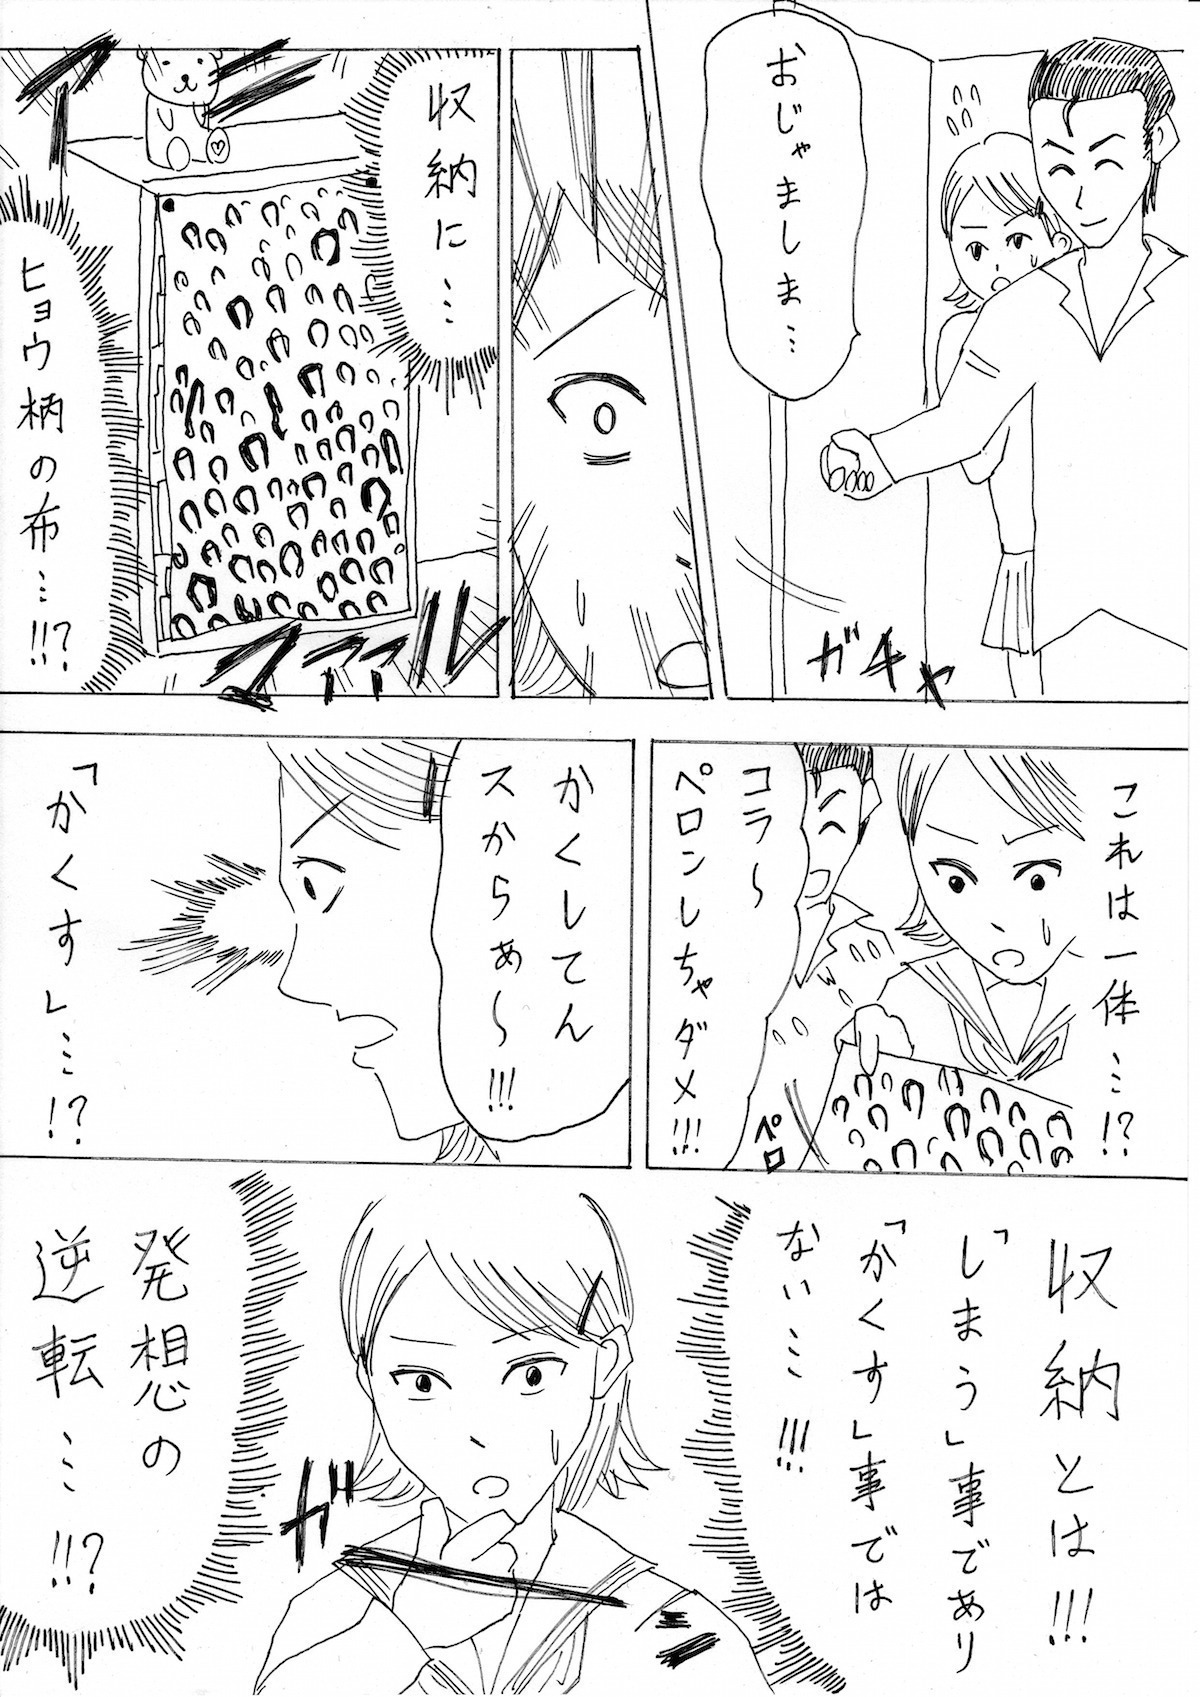 おじゃましま…
ガチャ
収納に…
ヒョウ柄の布…!!?
これは一体…!?
コラ〜
ペロンしちゃダメ!!!
ペロ
かくしてん
スからぁ〜!!!
「かくす」…!?
収納とは!!!
「しまう」事であり
「かくす」事では
ない…!!!
ガーン
発想の
逆転…!!?